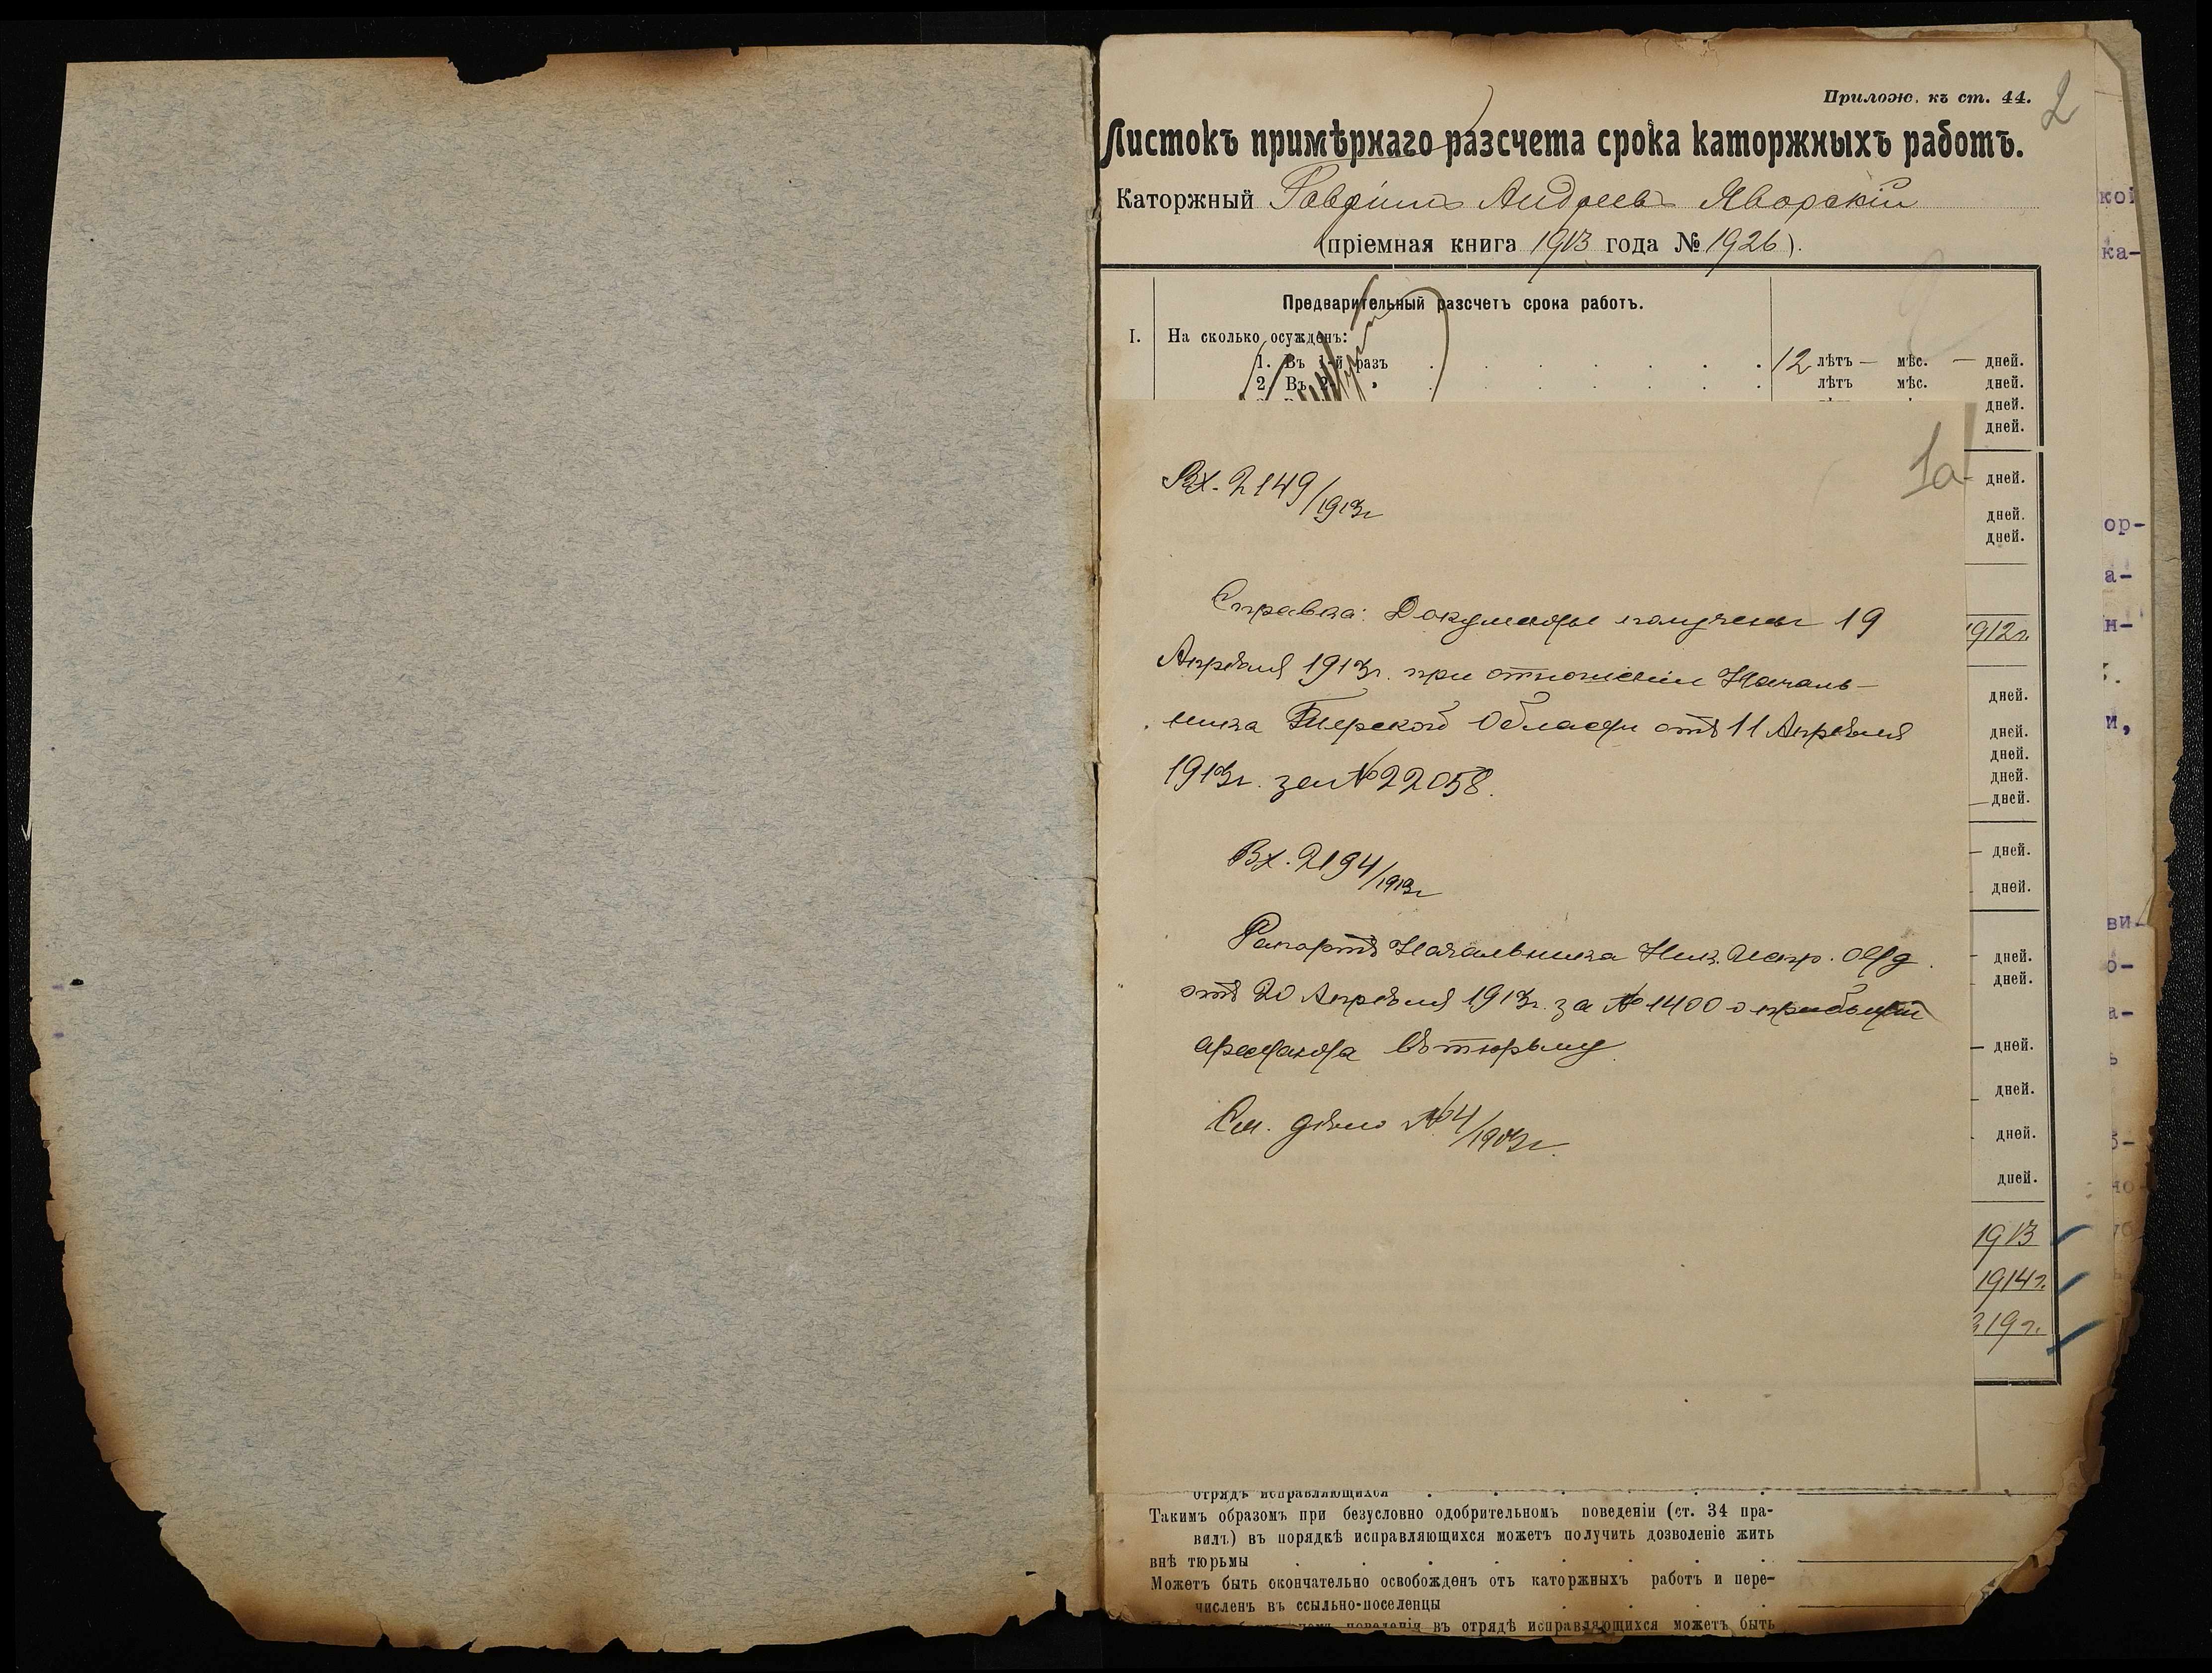 Прилож. къ ст. 44.
2
Листокъ примѣрнаго разсчета срока каторжныхъ работъ.
Каторжный Гаврiилъ Андреевъ Яворскiй
(прiемная книга 1913 года № 1926).
Предварительный разсчетъ срока работъ.
I. На сколько осужденъ:
1. Въ 1-й разъ 12 лѣтъ — мѣс. — дней.
2. Въ 2- " лѣтъ мѣс. дней.
дней.
дней.
1а
Вх. 2149/1913г
дней.
дней.
дней.
Справка: Документы получены 19
Апрѣля 1913г. при отношенiи Началь-
ника Терской Области отъ 11 Апрѣля
1913г. за № 22058.
1912г.
дней.
дней.
дней.
дней.
дней.
Вх. 2194/1913г
дней.
дней.
Рапортъ Начальника Ник. Отд.
отъ 20 Апрѣля 1913г. за № 1400 о прибытiи
арестанта въ тюрьму.
дней.
дней.
дней.
См. дѣло № 4/1913г.
дней.
дней.
дней.
1913
1914г.
19г.
отрядъ исправляющихся
Такимъ образомъ при безусловно одобрительномъ поведенiи (ст. 34 пра-
вилъ) въ порядкѣ исправляющихся можетъ получить дозволенiе жить
внѣ тюрьмы
Можетъ быть окончательно освобожденъ отъ каторжныхъ работъ и пере-
численъ въ ссыльно-поселенцы
поведенiи въ отрядѣ исправляющихся можетъ быть
кой
ка-
ор-
а-
н-
и,
ви-
о-
а-